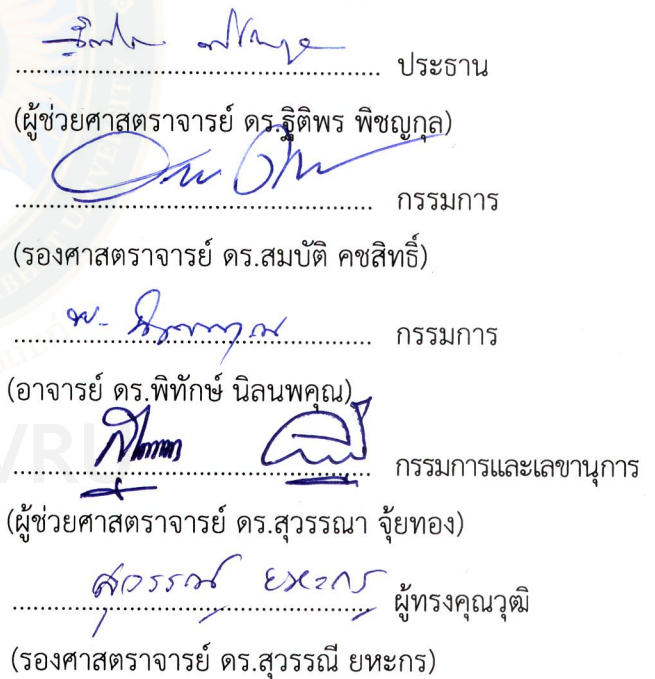 ประธาน
(ผู้ช่วยศาสตราจารย์ ดร.ฐิติพร พิชญกุล)
กรรมการ
(รองศาสตราจารย์ ดร.สมบัติ คชสิทธิ์)
กรรมการ
(อาจารย์ ดร.พิทักษ์ นิลนพคุณ)
VRU
กรรมการและเลขานุการ
(ผู้ช่วยศาสตราจารย์ ดร.สุวรรณา จุ้ยทอง)
สุวรรณี ยหะกร ผู้ทรงคุณวุฒิ
(รองศาสตราจารย์ ดร.สุวรรณี ยหะกร)